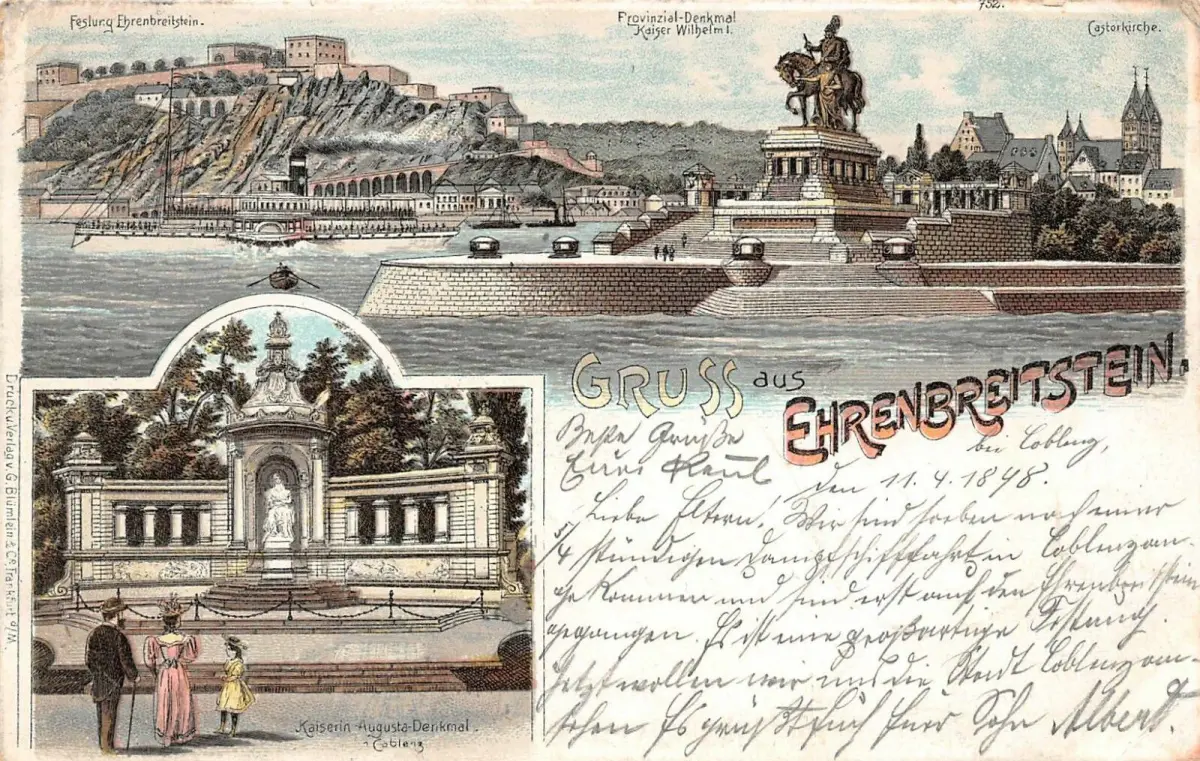 752.
Festung Ehrenbreitstein.
Provinzial-Denkmal
Kaiser Wilhelm I.
Castorkirche.
GRUSS aus
EHRENBREITSTEIN.
bei Coblenz,
den 11.4.1898.
Beste Grüße
Euer Paul
Liebe Eltern! Wir sind soeben nach einer
stündigen Dampfschifffahrt in Coblenz an-
gekommen und sind erst auf den Ehrenbreitstein
gegangen. Es ist eine großartige Festung.
Jetzt wollen wir uns die Stadt Coblenz an-
sehen Es grüßt Euch Euer Sohn Albert.
Kaiserin-Augusta-Denkmal.
i. Coblenz
Druck u. Verlag v. G. Blümlein & Co. Frankfurt a/M.